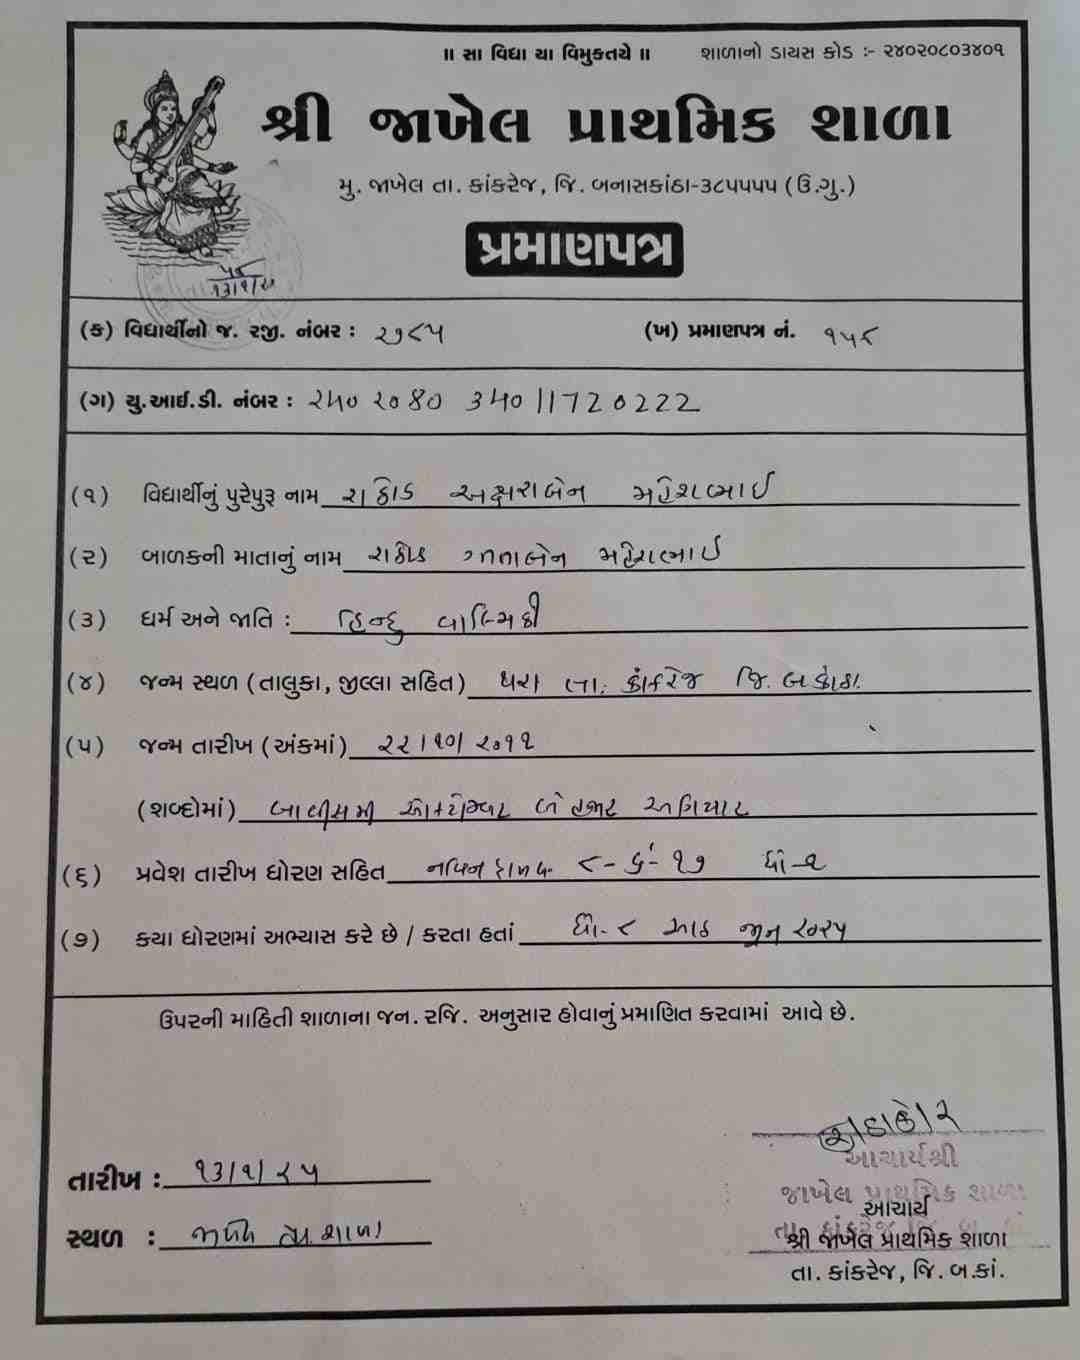 ॥ સા વિદ્યા યા વિમુક્તયે ॥ શાળાનો ડાયસ કોડ :- ૨૪૦૨૦૮૦૩૪૦૧
શ્રી જાખેલ પ્રાથમિક શાળા
મુ. જાખેલ તા. કાંકરેજ, જિ. બનાસકાંઠા-૩૮૫૫૫૫ (ઉ.ગુ.)
પ્રમાણપત્ર
૧૩/૧/૨૫
(ક) વિદ્યાર્થીનો જ. રજી. નંબર : ૨૭૮૫ (ખ) પ્રમાણપત્ર નં. ૧૫૮
(ગ) યુ.આઈ.ડી. નંબર : ૨૫૦ ૨૦૪૦ ૩૫૦ 11720222
(૧) વિદ્યાર્થીનું પુરેપુરૂ નામ રાઠોડ અક્ષરાબેન મહેશભાઈ
(૨) બાળકની માતાનું નામ રાઠોડ બેન મહેશભાઈ
(૩) ધર્મ અને જાતિ : હિન્દુ વાલ્મિકી
(૪) જન્મ સ્થળ (તાલુકા, જીલ્લા સહિત) થરા તા. કાંકરેજ જિ. બ.કાંઠા.
(૫) જન્મ તારીખ (અંકમાં) ૨૨/૧૦/૨૦૧૧
(શબ્દોમાં) બાવીસમી ઓક્ટોમ્બર બે હજાર અગિયાર
(૬) પ્રવેશ તારીખ ધોરણ સહિત નવિન દાખલ ૮-૬-૧૭ ધો-૧
(૭) કયા ધોરણમાં અભ્યાસ કરે છે / કરતા હતાં ધો-૮ આઠ જૂન ૨૦૨૫
ઉપરની માહિતી શાળાના જન. રજિ. અનુસાર હોવાનું પ્રમાણિત કરવામાં આવે છે.
આચાર્યશ્રી
તારીખ : ૧૩/૧/૨૫
જાખેલ પ્રાથમિક શાળા
આચાર્ય
તા. કાંકરેજ જિ. બ.
સ્થળ : જાખેલ પ્રા. શાળા
શ્રી જાખેલ પ્રાથમિક શાળા
તા. કાંકરેજ, જિ. બ.કાં.